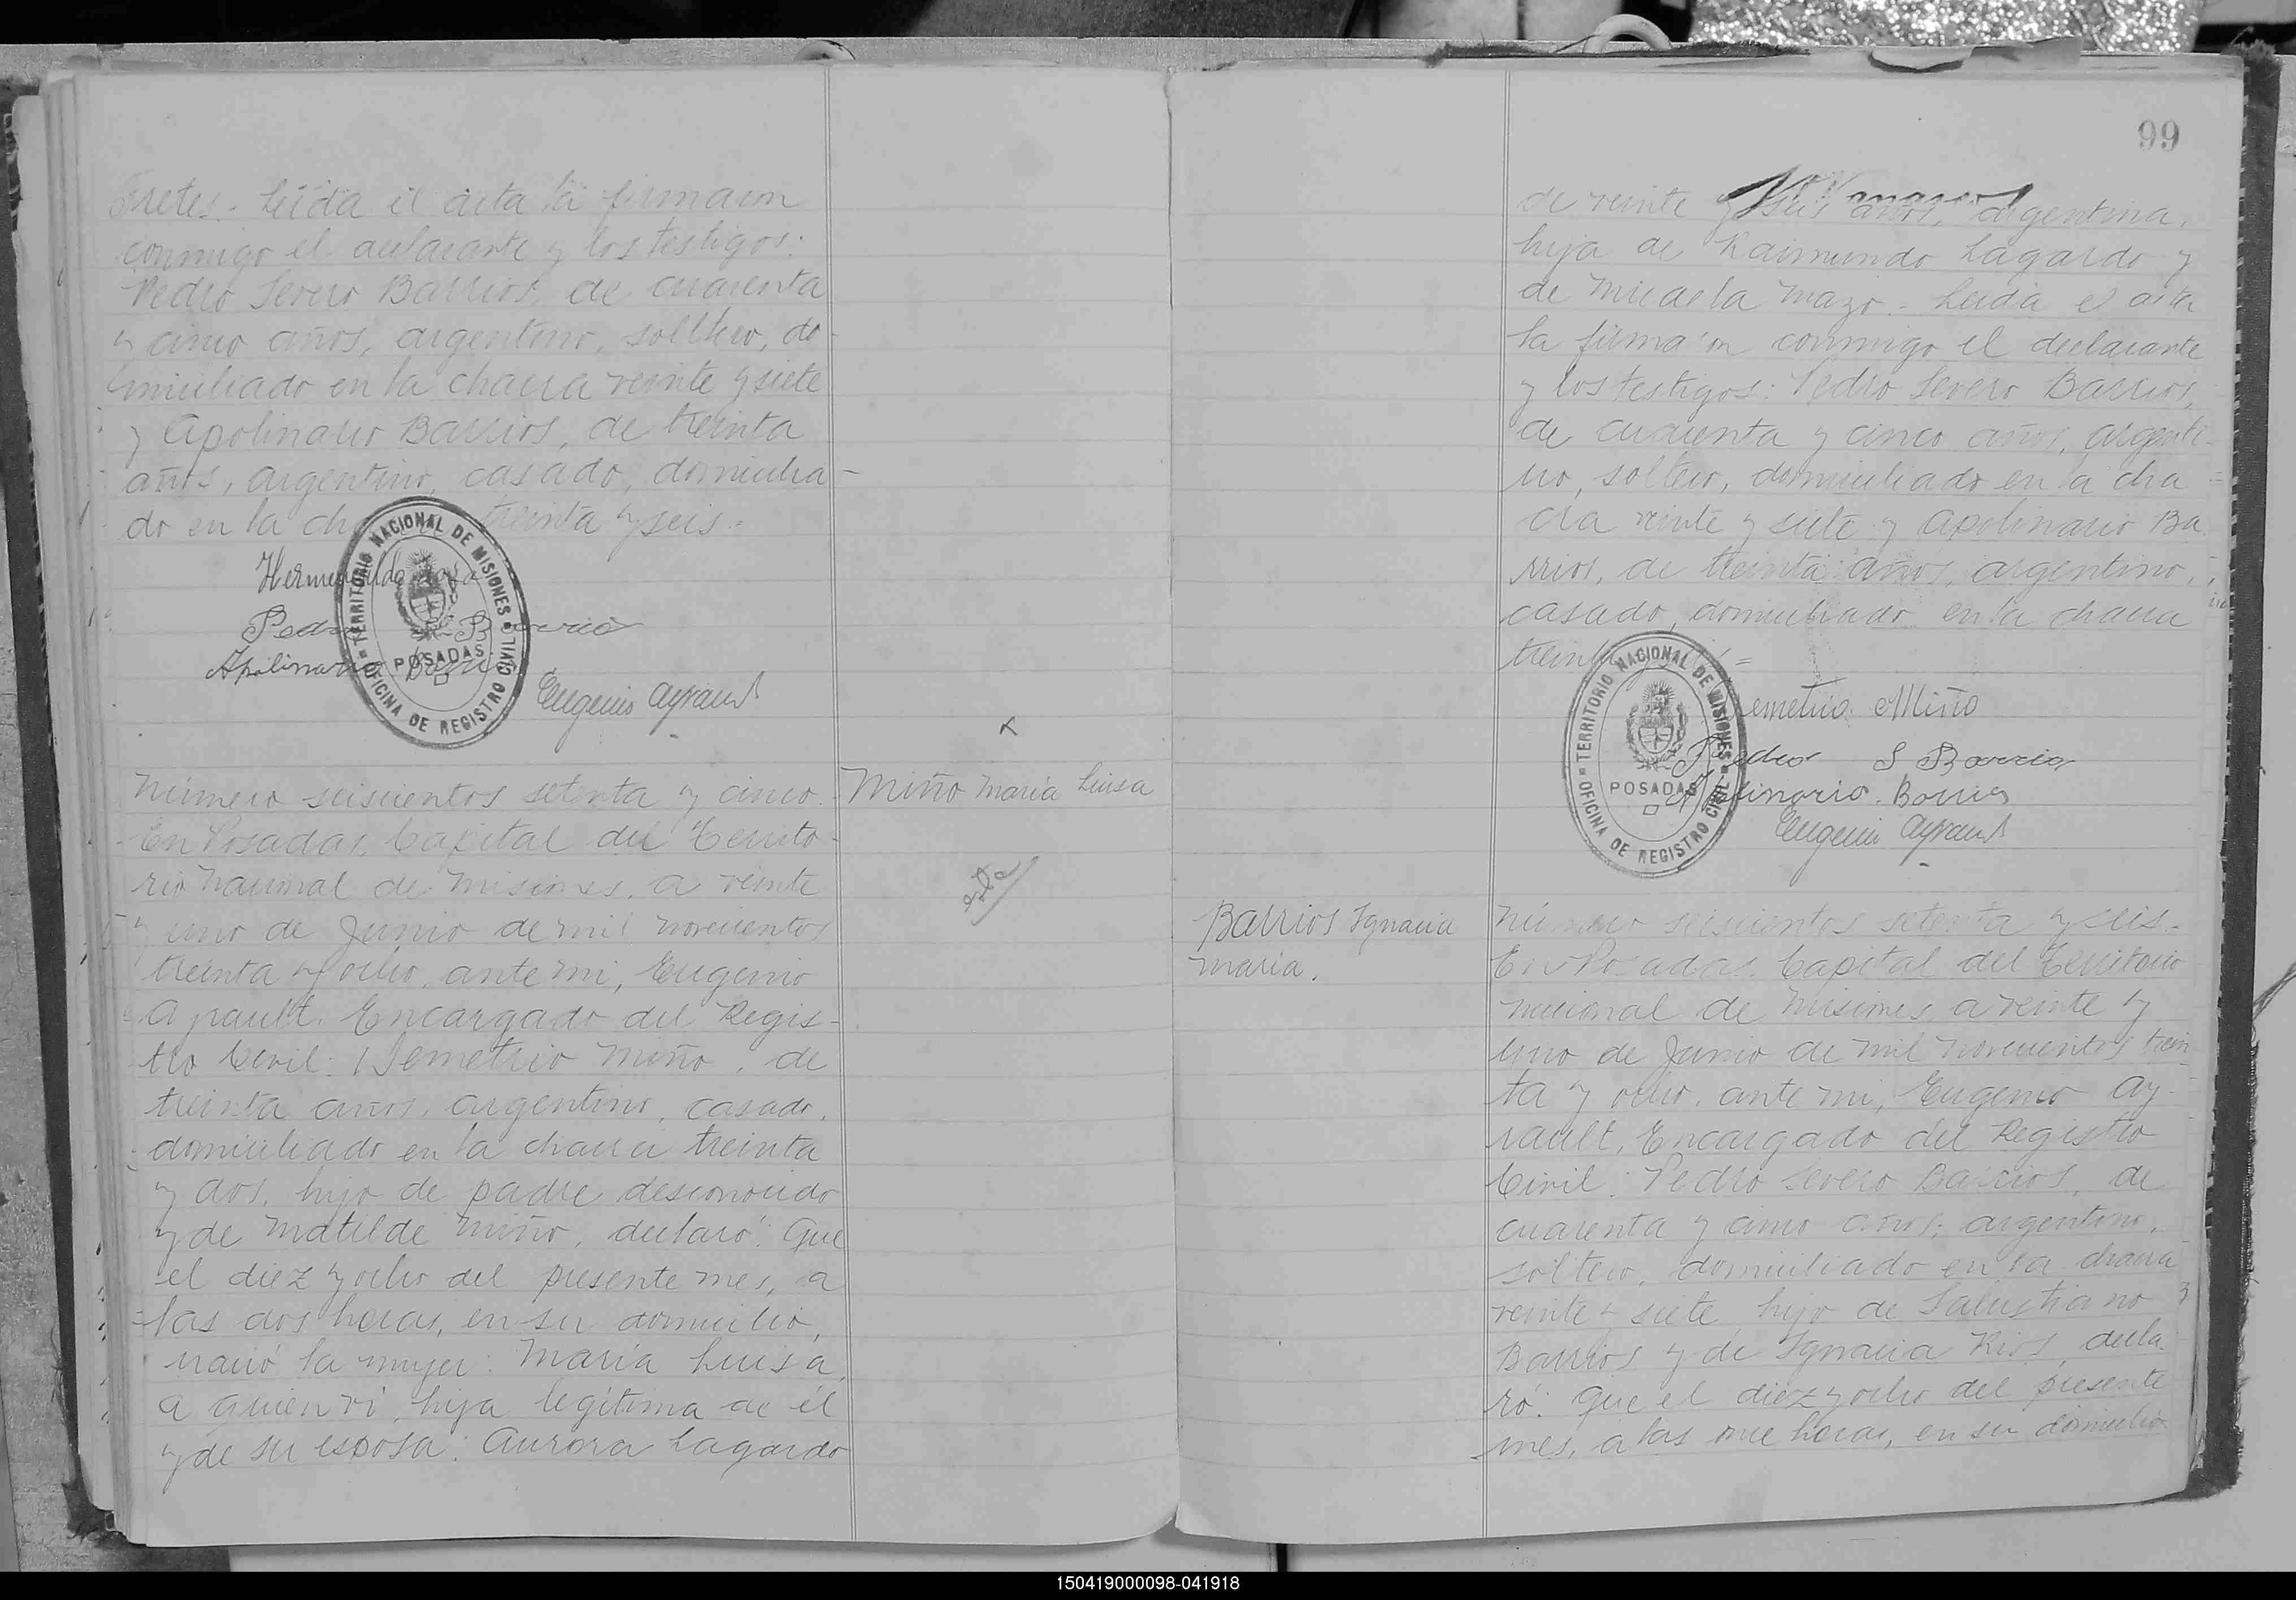 Fretes.- Leída el acta la firmaron
conmigo el declarante y los testigos:
Pedro Severo Barrios, de cuarenta
y cinco años, argentino, soltero, do-
miciliado en la chacra veinte y siete
y Apolinario Barrios, de treinta
años, argentino, casado, domicilia-
do en la treinta y seis.-
Pedro S Barrios
Apolinario Barrios
Eugenio Ayrault
TERRITORIO NACIONAL DE MISIONES
POSADAS
OFICINA DE REGISTRO CIVIL
Número seiscientos setenta y cinco.
En Posadas, Capital del Territo-
rio Nacional de Misiones, a veinte
y uno de Junio de mil novecientos
treinta y ocho, ante mi, Eugenio
Ayrault, Encargado del Regis-
tro Civil: Demetrio Miño, de
treinta años, argentino, casado,
domiciliado en la chacra treinta
y dos, hijo de padre desconocido
y de Matilde Miño, declaró: Que
el diez y ocho del presente mes, a
las dos horas, en su domicilio,
nació la mujer: María Luisa,
a quien ví, hija legítima de él
y de su esposa: Aurora Lagardo
x
Miño María Luisa
99
de veinte y seis años, argentina,
hija de Raimundo Lagardo y
de Micaela Mazo.- Leída el acta
la firmaron conmigo el declarante
y los testigos: Pedro Severo Barrios,
de cuarenta y cinco años, argenti-
no, soltero, domiciliado en la cha-
cra veinte y siete y Apolinario Ba-
rrios, de treinta años, argentino,
casado, domiciliado en la chacra
Demetrio Miño
Pedro S Barrios
Apolinario Barrios
Eugenio Ayrault
TERRITORIO NACIONAL DE MISIONES
POSADAS
OFICINA DE REGISTRO CIVIL
Barrios Ignacia
María.
Número seiscientos setenta y seis.-
En Posadas, Capital del Territorio
nacional de Misiones, a veinte y
uno de Junio de mil novecientos trein-
ta y ocho, ante mi, Eugenio Ay-
rault, Encargado del Registro
Civil: Pedro Severo Barrios, de
cuarenta y cinco años, argentino,
soltero, domiciliado en la chacra
veinte y siete, hijo de Salustiano
Barrios y de Ignacia Rios, decla-
ró: Que el diez y ocho del presente
mes, a las once horas, en su domicilio
150419000098-041918